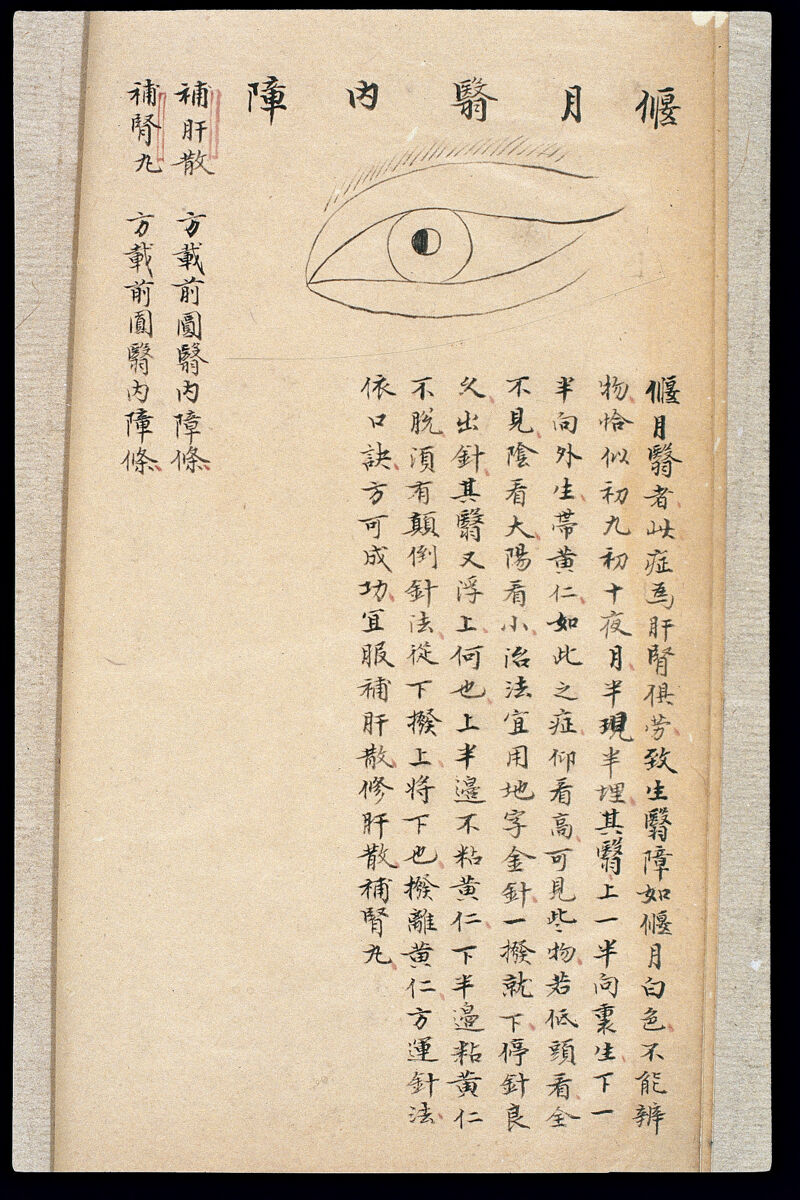 偃月翳內障
偃月翳者此症為肝腎俱勞致生翳障如偃月白色不能辨
物恰似初九初十夜月半現半埋其翳上一半向裏生下一
半向外生帶黃仁如此之症仰看高可見些物若低頭看全
不見陰看大陽看小治法宜用地字金針一撥就下停針良
久出針其翳又浮上何也上半邉不粘黃仁下半邉粘黃仁
不脫湏有顛倒針法從下撥上將下也撥離黃仁方運針法
依口訣方可成功宜服補肝散修肝散補腎丸
補肝散 方載前圓翳內障條
補腎丸 方載前圓翳內障條